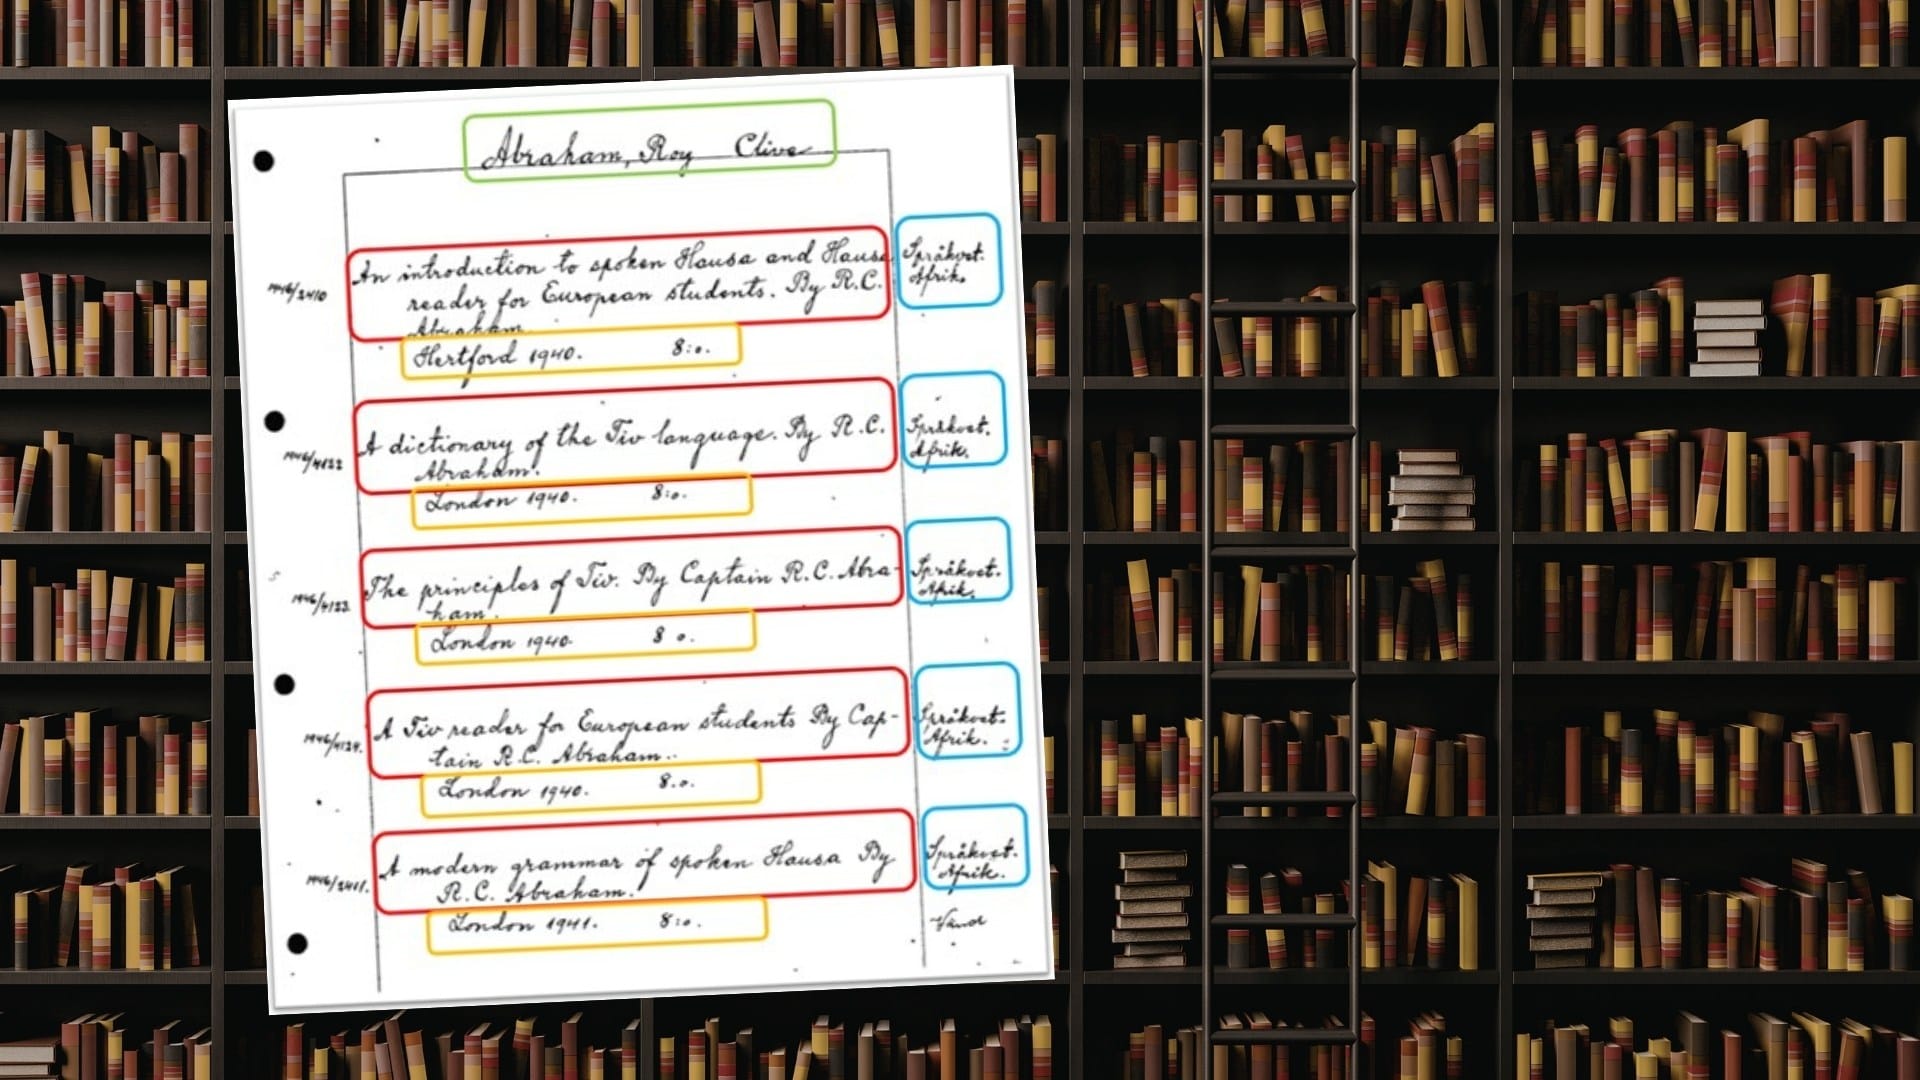 Abraham, Roy Clive
1946/2410
An introduction to spoken Hausa and Hausa
reader for European students. By R.C.
Abraham
Språkvet.
Afrik.
Hertford 1940. 8:o.
1946/4122
A dictionary of the Tiv language. By R.C.
Abraham.
Språkvet.
Afrik.
London 1940. 8:o.
1946/4123.
The principles of Tiv. By Captain R.C. Abra-
ham.
Språkvet.
Afrik.
London 1940. 8 o.
1946/4124.
A Tiv reader for European students By Cap-
tain R.C. Abraham.
Språkvet.
Afrik.
London 1940. 8.o.
1946/2411.
A modern grammar of spoken Hausa By
R.C. Abraham.
Språkvet.
Afrik.
London 1941. 8:o.
Vänd